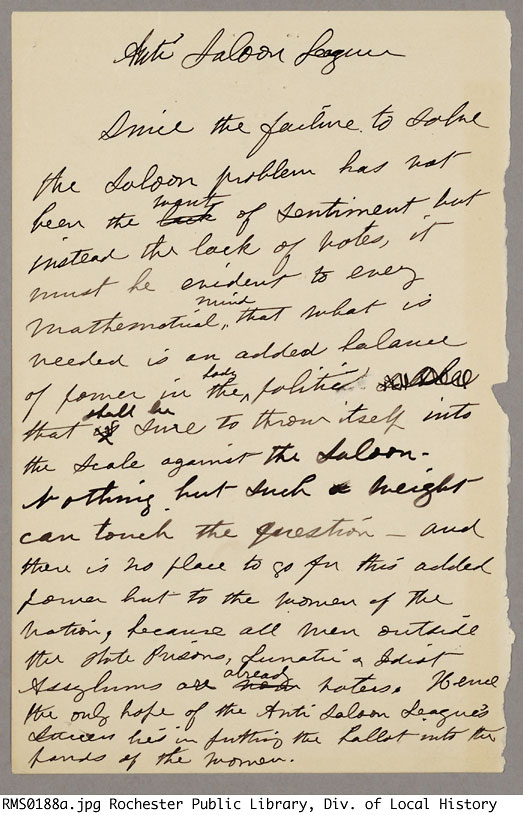 Anti Saloon League
Since the failure to solve
the Saloon problem has not
been the wants lack of sentiment but
instead the lack of votes, it
must be evident to every
mathematical, mind that what is
needed is an added balance
of power in the body politic
that is shall be sure to throw itself into
the scale against the Saloon -
Nothing but such a weight
can touch the question - and
there is no place to go for this added
power but to the women of the
nation, because all men outside
the State Prisons, Lunatic & Idiot
Assylums are already now voters. Hence
the only hope of the Anti Saloon League's
Success lies in putting the ballot into the
hands of the women.
RMS0188a.jpg Rochester Public Library, Div. of Local History